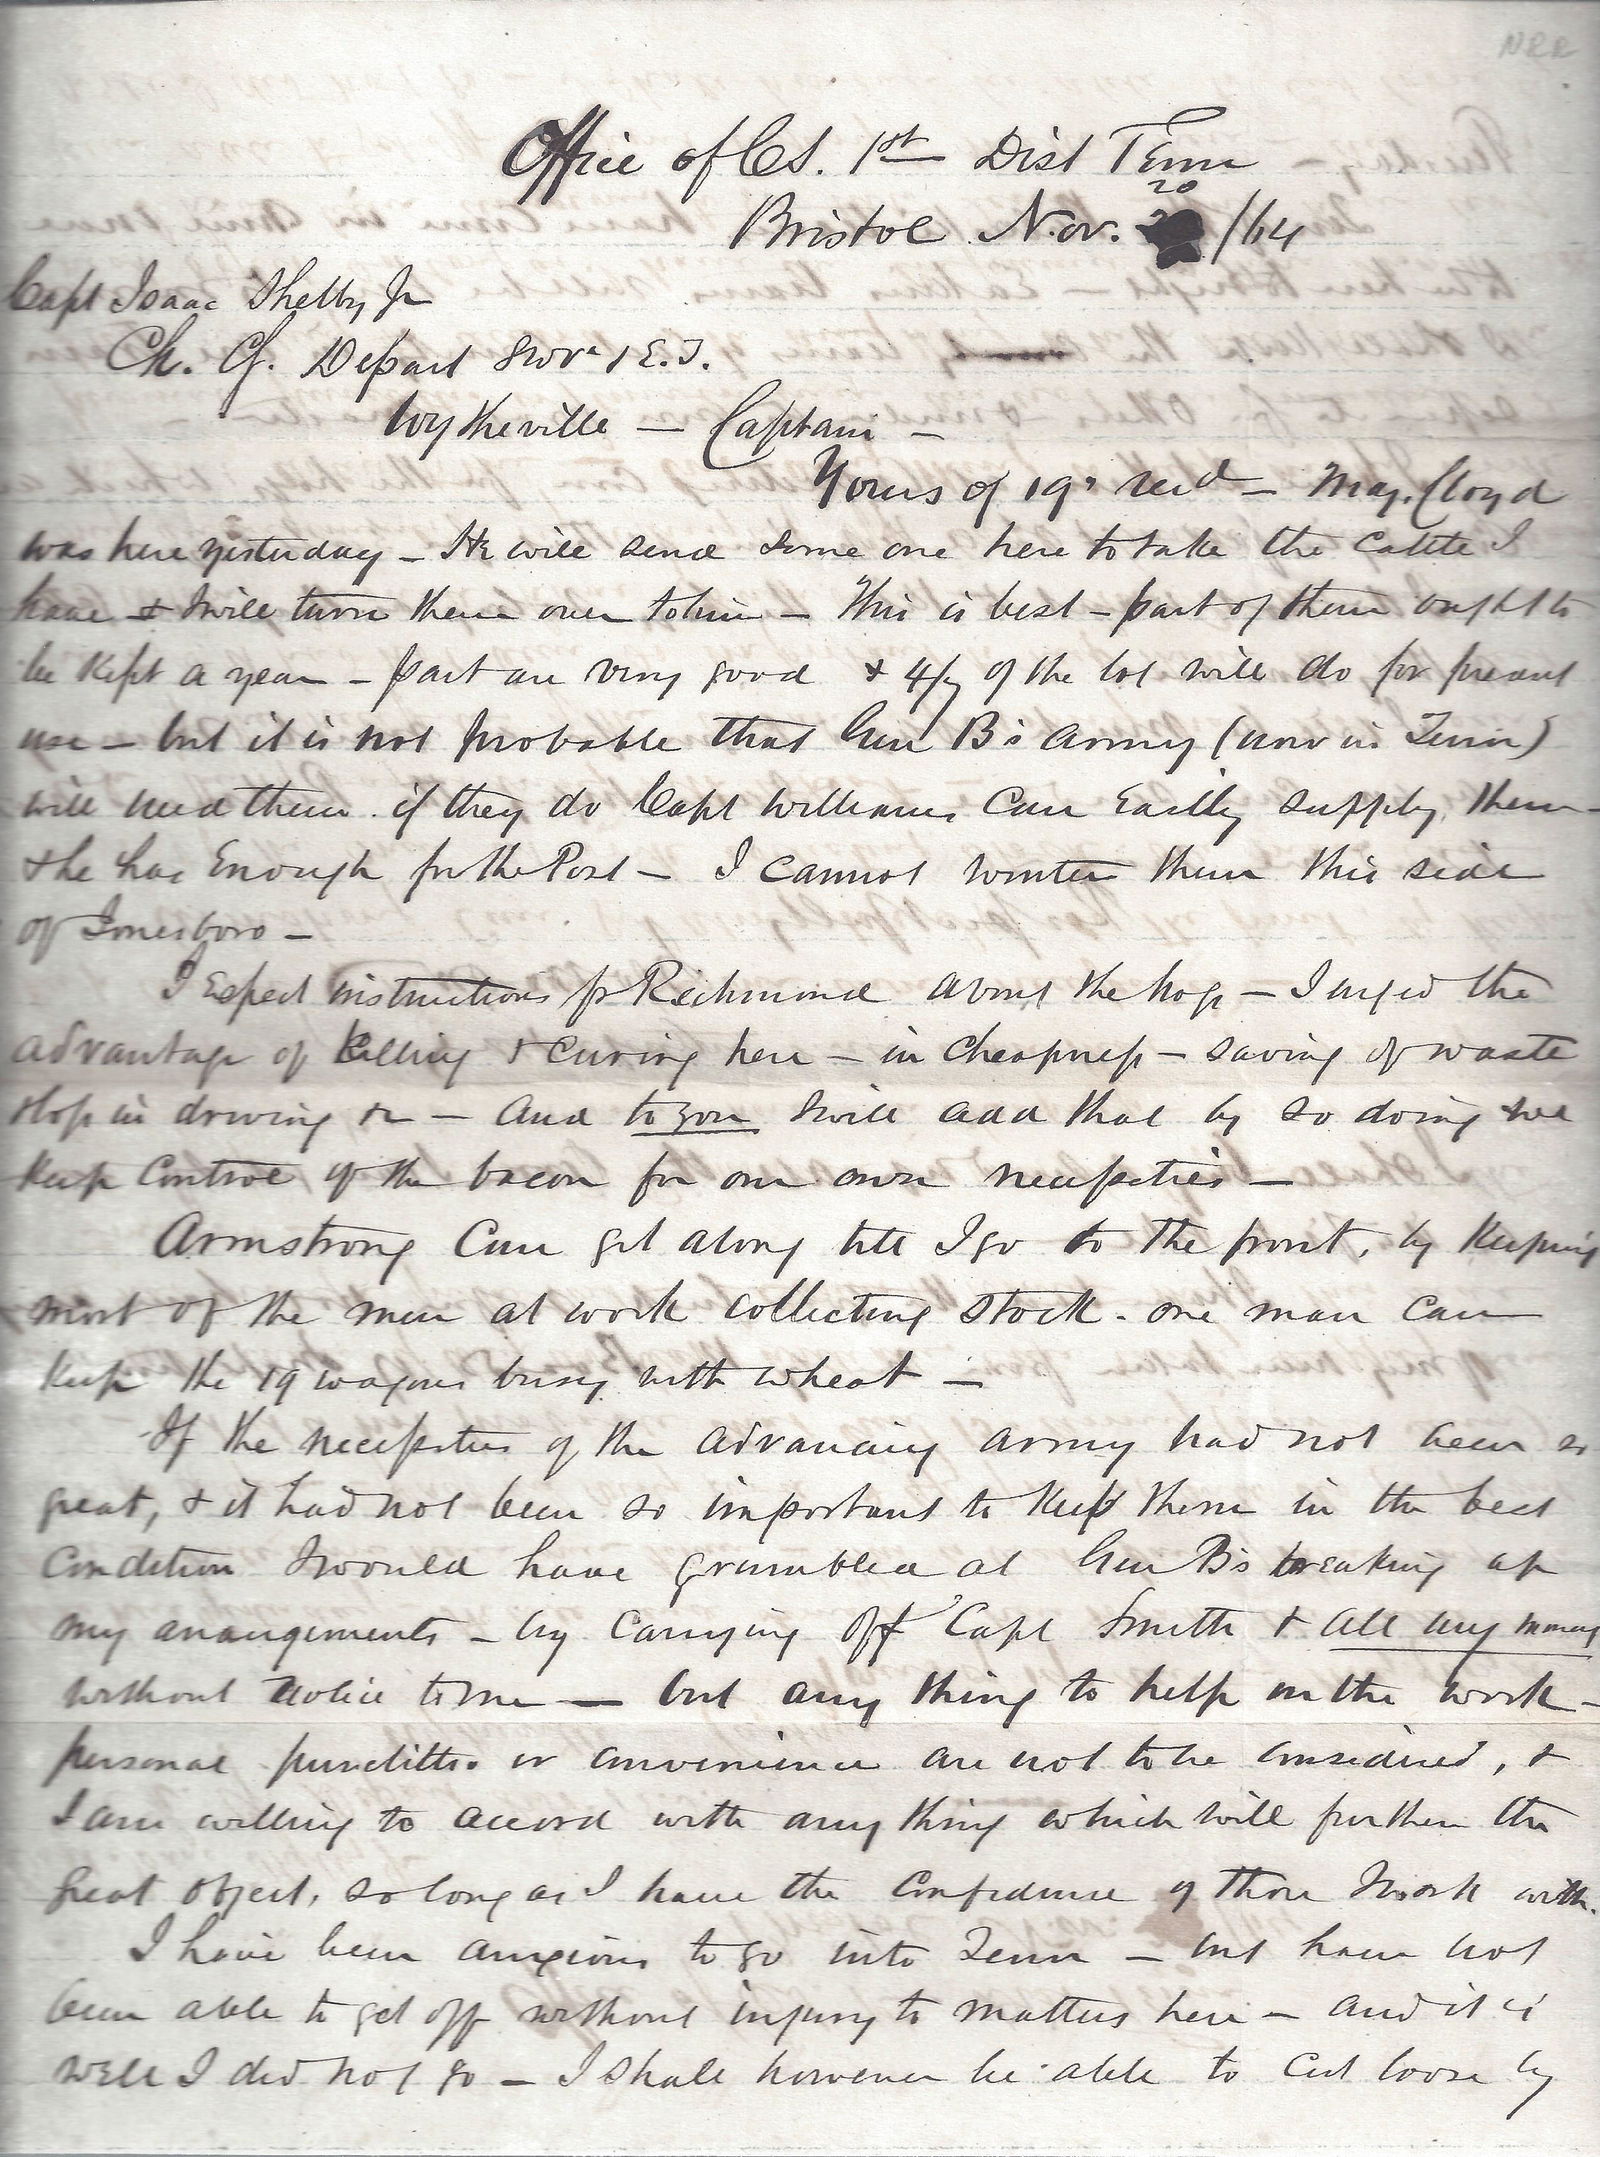 NRR
Office of CS. 1st Dist Tenn
Bristol Nov. 20 /64
Capt Isaac Shelby Jr
Ch. CS. Depart SWVa & E.T.
Wytheville — Captain —
Yours of 19th recd — Maj. Cloyd
was here yesterday — He will send some one here to take the cattle I
have & I will turn them over to him — This is best — part of them ought to
be kept a year — part are very good & 4/5 of the lot will do for present
use — but it is not probable that Gen B's army (now in Tenn)
will need them. if they do Capt Williams can Easily supply them —
& he has Enough for the Post — I cannot winter them this side
of Jonesboro —
I Expect instructions fr Richmond about the hogs — I urged the
advantage of killing & curing here — in cheapness — saving of waste
& loss in driving &c — and to you I will add that by so doing we
keep control of the bacon for our own necessities —
Armstrong can get along till I go to the front, by keeping
most of the men at work collecting stock. one man can
keep the 19 wagons busy with wheat —
If the necessities of the advancing army had not been so
great, & it had not been so important to keep them in the best
condition I would have grumbled at Gen B's breaking up
my arangements — by carrying off Capt Smith & all my money
without notice to me — but any thing to help on the work —
personal punctilio or convenience are not to be considered, &
I am willing to accord with any thing which will further the
great object, so long as I have the confidence of those I work with.
I have been anxious to go into Tenn — but have not
been able to get off without injury to matters here — and it is
well I did not go — I shall however be able to cut loose by